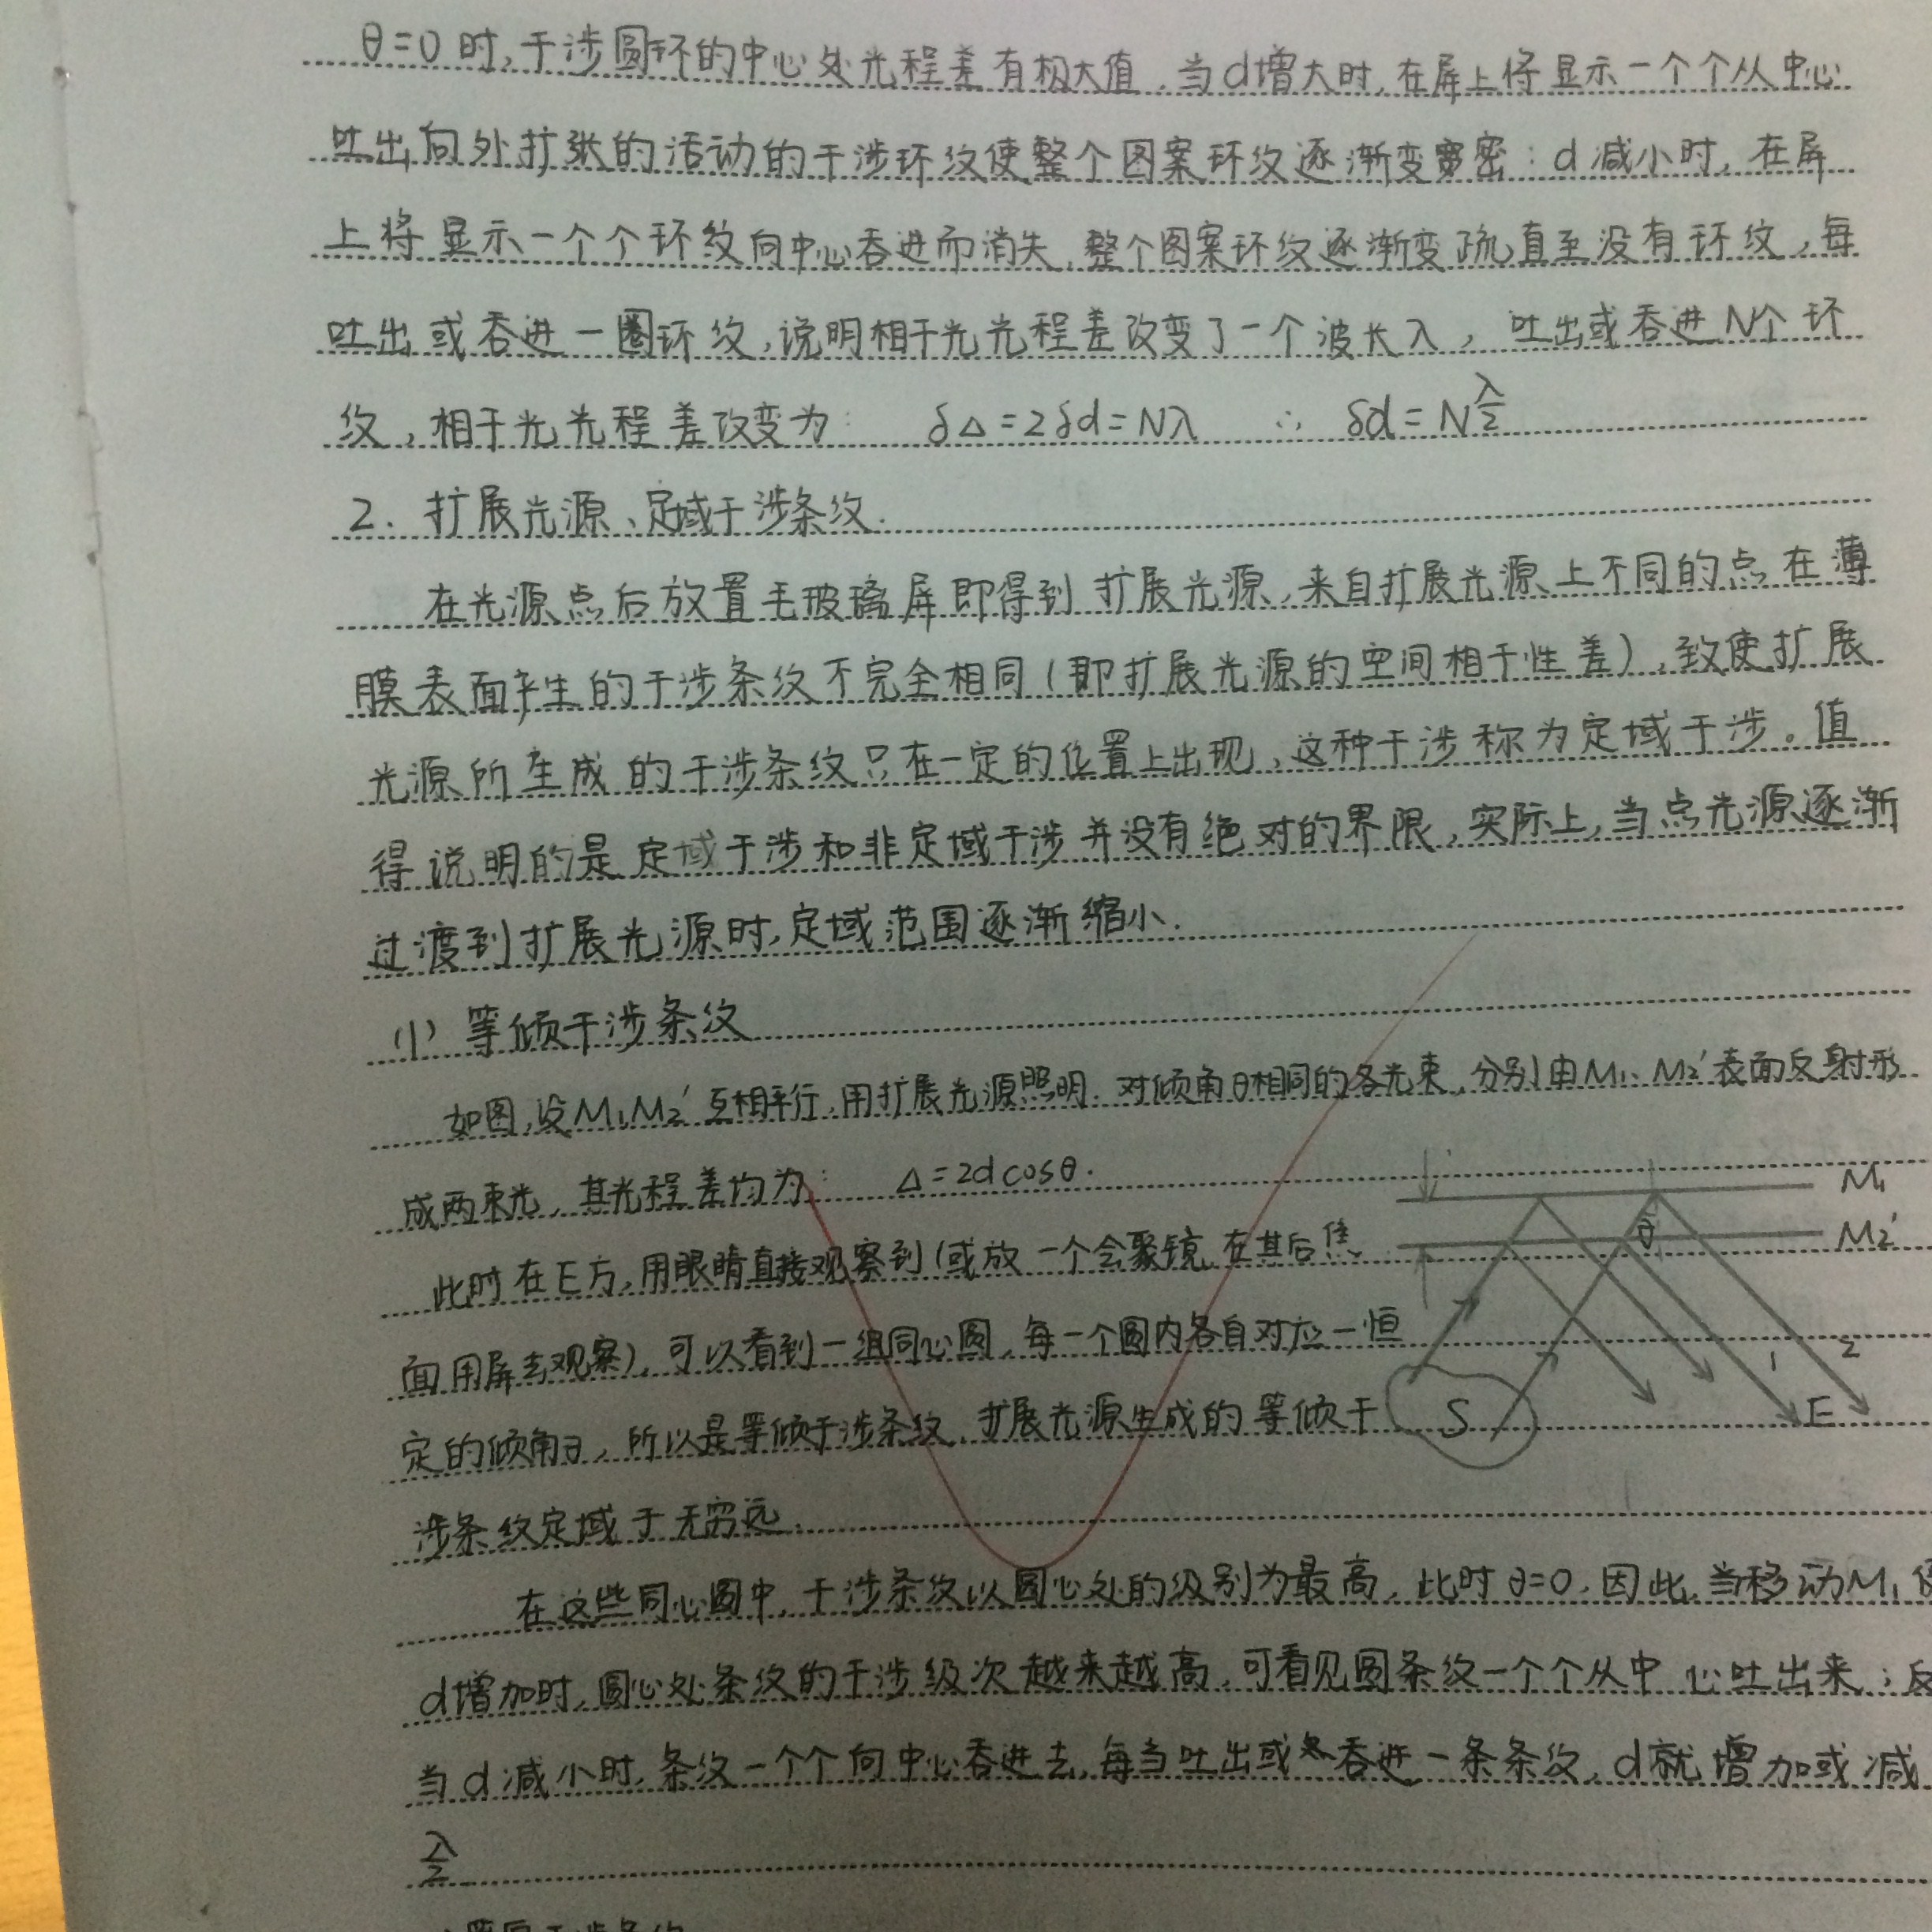 θ=0时,干涉圆环的中心处光程差有极大值,当d增大时,在屏上将显示一个个从中心
吐出向外扩张的活动的干涉环纹使整个图案环纹逐渐变密;d减小时,在屏
上将显示一个个环纹向中心吞进而消失,整个图案环纹逐渐变疏直至没有环纹,每
吐出或吞进一圈环纹,说明相干光光程差改变了一个波长λ,吐出或吞进N个环
纹,相干光光程差改变为: δΔ=2δd=Nλ ∴ δd=Nλ/2
2. 扩展光源、定域干涉条纹.
在光源点后放置毛玻璃屏即得到扩展光源,来自扩展光源上不同的点在薄
膜表面产生的干涉条纹不完全相同(即扩展光源的空间相干性差),致使扩展
光源所生成的干涉条纹只在一定的位置上出现,这种干涉称为定域干涉。值
得说明的是定域干涉和非定域干涉并没有绝对的界限,实际上,当点光源逐渐
过渡到扩展光源时,定域范围逐渐缩小.
(1) 等倾干涉条纹
如图,设M₁M₂′互相平行,用扩展光源照明.对倾角θ相同的各光束,分别由M₁、M₂′表面反射形
成两束光,其光程差均为: Δ=2dcosθ.
M₁
M₂′
θ
此时在E方,用眼睛直接观察到(或放一个会聚镜在其后焦
面用屏去观察),可以看到一组同心圆,每一个圆内各自对应一恒
1 2
定的倾角θ,所以是等倾干涉条纹,扩展光源生成的等倾干
S E
涉条纹定域于无穷远.
在这些同心圆中,干涉条纹以圆心处的级别为最高,此时θ=0,因此,当移动M₁
d增加时,圆心处条纹的干涉级次越来越高,可看见圆条纹一个个从中心吐出来;反
当d减小时,条纹一个个向中心吞进去,每当吐出或吞进一条条纹,d就增加或减
λ/2